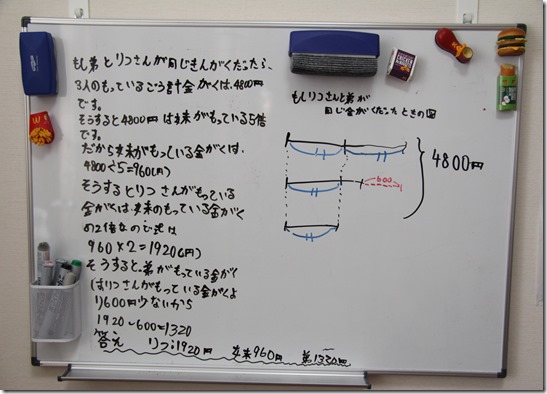 もし弟とりつさんが同じきんがくだったら、
3人のもっているごう計金がくは、4800円
です。
そうすると4800円は妹がもっている5倍
です。
だから妹がもっている金がくは、
4800÷5=960(円)
そうするとりつさんがもっている
金がくは妹のもっている金がく
の2倍なので式は
960×2=1920(円)
そうすると、弟がもっている金がく
はりつさんがもっている金がくよ
り600円少ないから
1920-600=1320
答え りつ:1920円 妹960円 弟1320円
もしりつさんと弟が
同じ金がくだったときの図
4800円
600